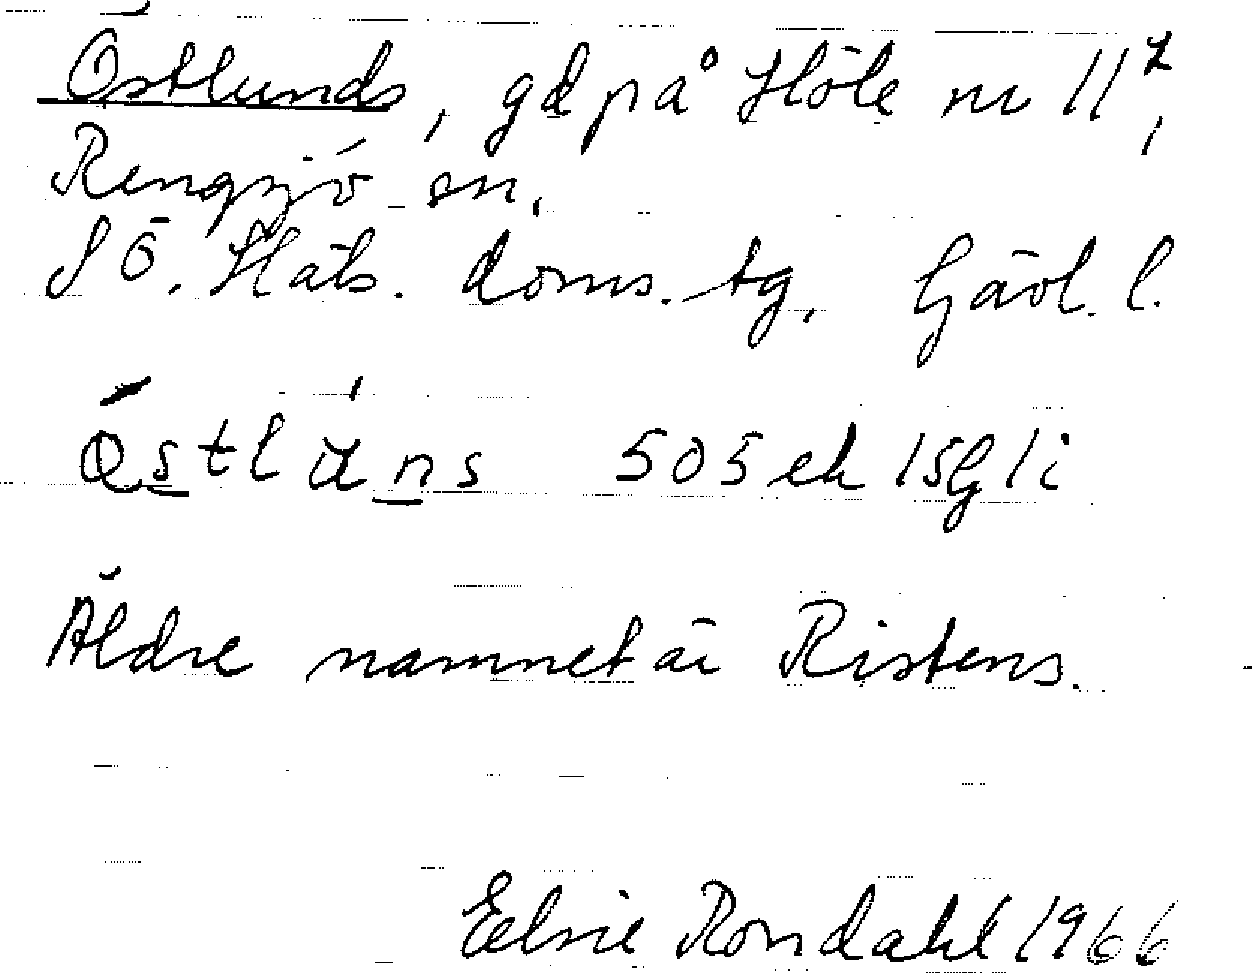 Östlunds, gd på Höle nr 11²,
Rengsjö sn.
SÖ. Häls. doms. tg, Gävl. l.
Östlúns 505 ek 15G 1i
Äldre namnet är Ristens.
Elsie Rondahl 1966